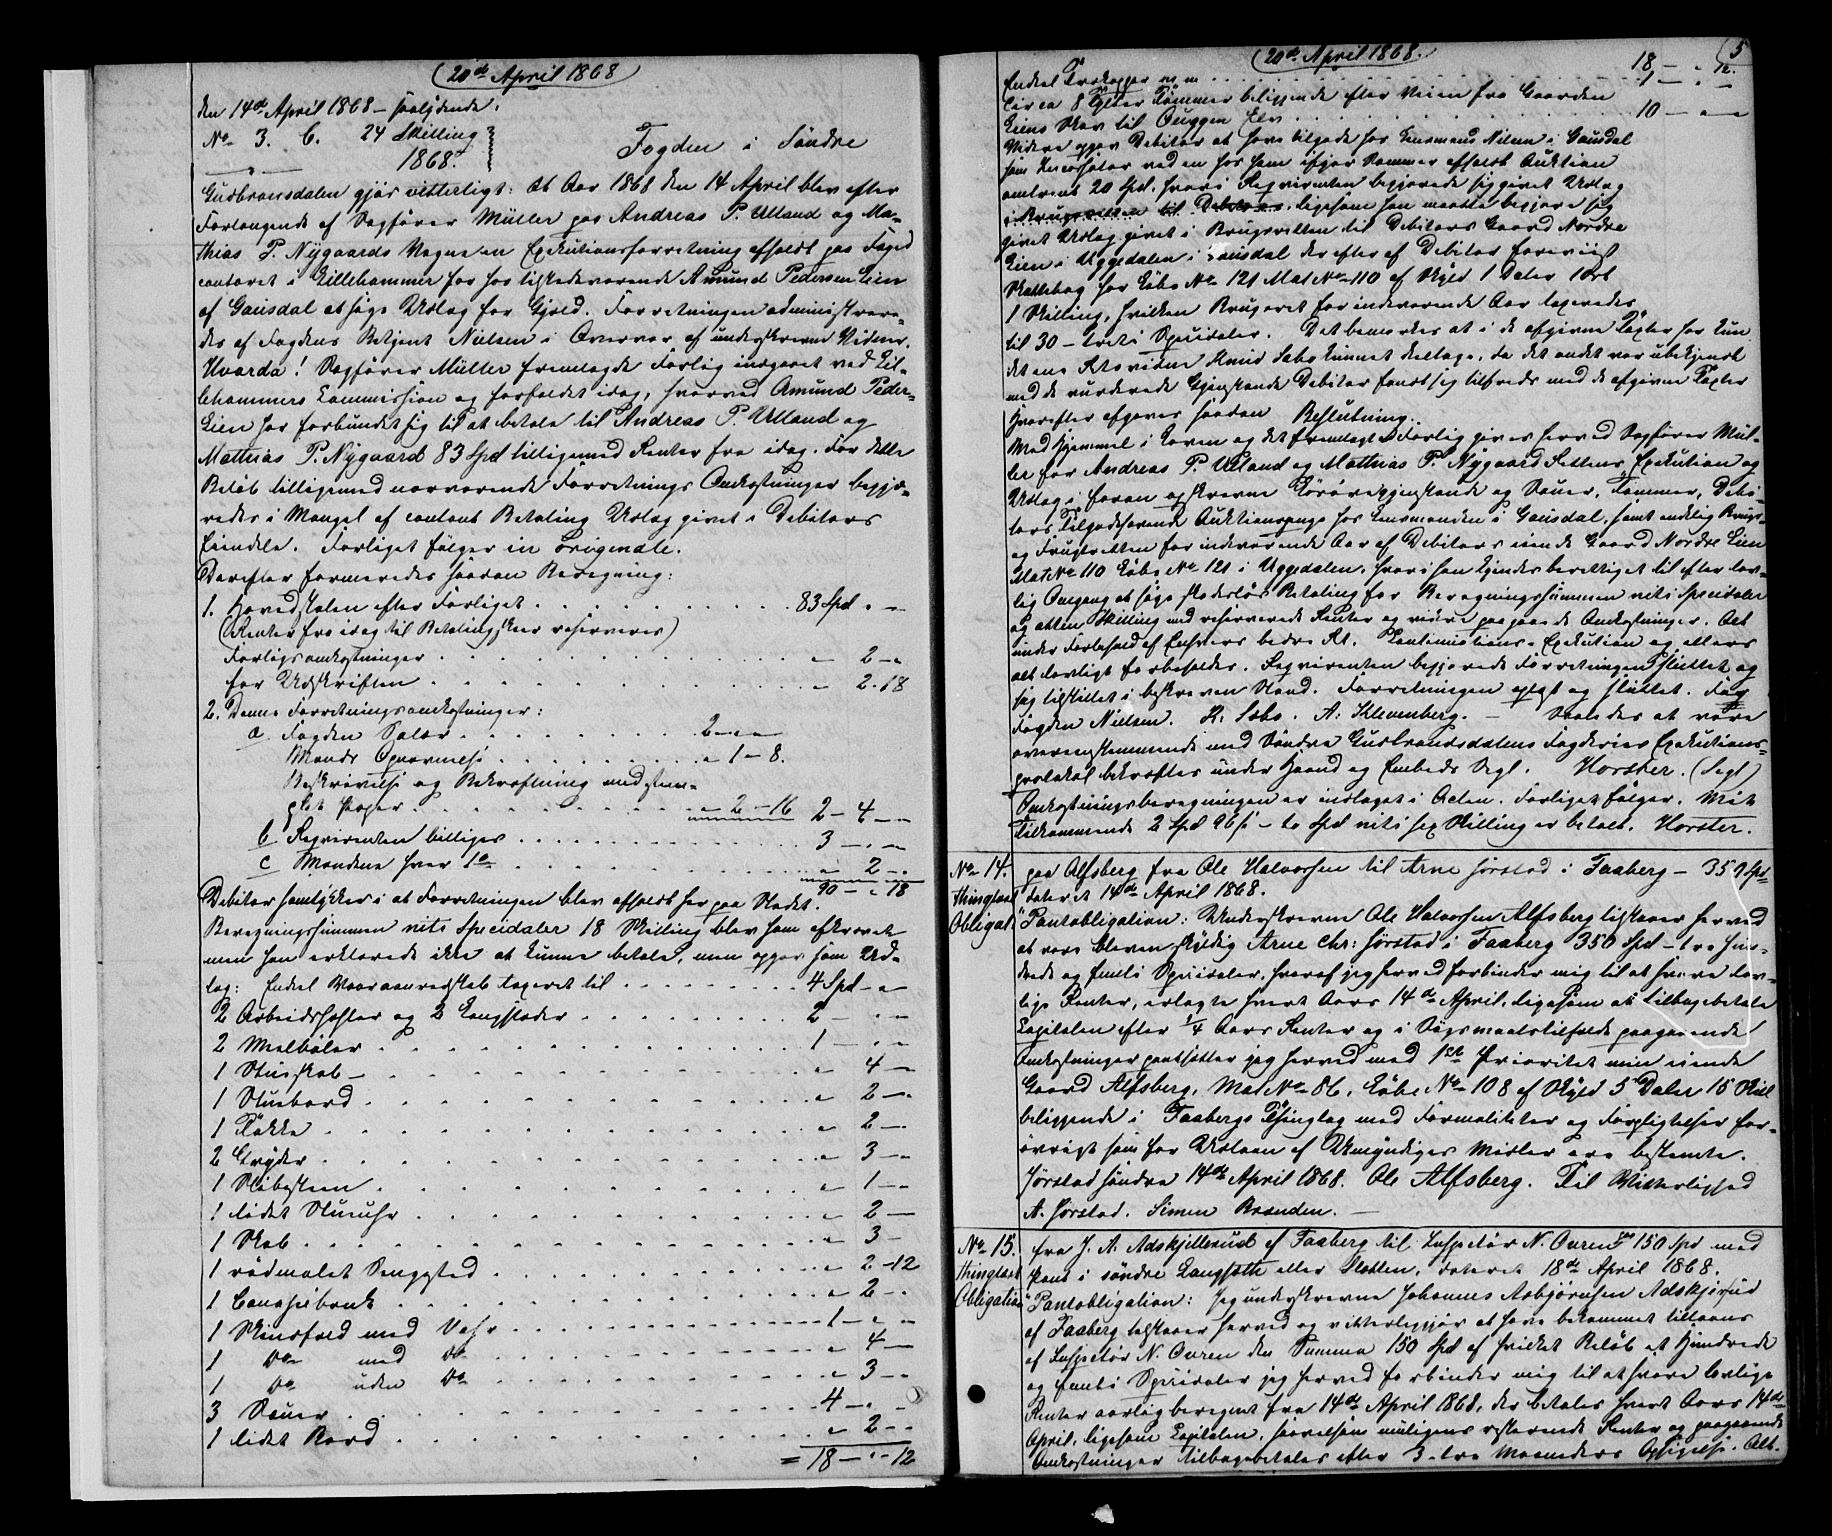 (20de April 1868)
den 14de April 1868 – saalydende:
No 3. C. 24 Skilling
1868.
Fogden i Søndre
Gudbrandsdalen gjør vitterligt: At Aar 1868 den 14 April blev efter
Forlangende af Sagfører Müller paa Andreas P. Ulland og Ma-
thias P. Nygaards Vegne en Exekutionsforretning afholdt paa Foged
contoret i Lillehammer hos hos tilstedeværende Amund Pedersen Lien
af Gausdal at søge Udlæg for Gjæld. Forretningen administrere-
des af Fogdens Betjent Nielsen i Overvær af underskrevne Vidner.
Hvorda! Sagfører Müller fremlagde Forlig indgaaet ved Lil-
lehammers Commission og forfaldet idag, hvorved Amund Peder.
Lien har forbundet sig til at betale til Andreas P. Ulland og
Matthias P. Nygaard 83 Spd tilligemed Renter fra idag. For dette
Beløb tilligemed nærværende Forretnings Omkostninger begjæ-
redes i Mangel af contant Betaling Udlæg givet i Debitors
Eiendele. Forliget følger in originale.
Derefter formeredes saadan Beregning:
1. Hovedstolen efter Forliget . . . 83 Spd „ –
(Renter fra idag til Betaling skeer reserveres)
Forligsomkostninger . . . „ 2 – „
for Udskriften . . . „ 2 . 18
2. Denne Forretningsomkostninger:
a. Fogden Salær . . . 2 – „ –
Mænds Opnævnelse . . . „ 1 – 8.
Beskrivelse og Bekræftning med stem-
plet Papir . . . „ 2 – 16 2 – 4 – „
b. Reqvirenten billiges . . . 3 – „ –
c. Mændene hver 1 . . . „ 2 – „
90 – „ 18
Debitor samtykker i at Forretningen blev afholdt her paa Stedet.
Beregningssummen niti Speciedaler 18 Skilling blev ham afkrævet
men han erklærede ikke at kunne betale, men opgav som Ud-
læg: Endeel Vaaraanredskab taxeret til . . . 4 Spd – „ –
2 Arbeidshester og 2 Langslæder . . . 2 – „ –
2 Meelbøler . . . 1 – „ –
1 Stueskab – . . . „ 4 – „
1 Stuebord . . . „ 2 – „
1 Klokke . . . „ 2 – „
2 Gryder . . . „ 3 – „
1 Slibesteen . . . „ 1 – „
1 lidet Stueuhr . . . „ 2 –
1 Skab . . . „ 3 –
1 rødmalet Sengsted . . . „ 2 – 12
1 Canapebænk . . . „ 2 – „
1 Skindfeld med Vahr . . . 1 – „ –
1 do med do . . . „ 4 –
1 do uden do . . . „ 3 –
3 Sauer . . . 4 – „ –
1 lidet Bord . . . „ 2 – „
= 18 – „ – 12
(20de April 1868.)
5
18 – „ 12.
Endeel Trækopper m m . . . „ 1 – „ –
Circa 8 Tylter Tømmer beliggende efter Veien fra Gaarden
Liens Skov til Auggen Elv . . . 10 – „ –
Videre opgav Debitor at have tilgode hos Lensmand Nilsen i Gausdal
som Incassator ved en hos ham ifjor Sommer afholdt Auktion
omtrent 20 Spd, hvori Reqvirenten begjærede sig givet Udlæg
i Brugsretten til Debitors, ligesom han maatte begjære sig
givet Udlæg givet i Brugsretten til Debitors Gaard Nordre
Lien i Uggedalen i Gausdal der efter af Debitor foreviist
Skattebog har Løbe No 121 Mat No 110 af Skyld 1 Daler 1 Ort
1 Skilling, hvilken Brugsret for indeværende Aar taxeredes
til 30 – treti Speciedaler. Det bemærkes at i de afgivne Taxter har kun
det ene Retsvidne Knud Sebo kunnet deeltage, da det andet var ubekjendt
med de vurderede Gjenstande. Debitor fandt sig tilfreds med de afgivne Taxter
hvorefter afgaves saadan Beslutning.
Med Hjemmel i Loven og det fremlagte Forlig gives herved Sagfører Mül-
ler for Andreas P. Ulland og Matthias P. Nygaard Rettens Exekution og
Udlæg i foran opskrevne Løsøregjenstande og Sauer, Tømmer, Debi-
tors Tilgodehavende Auktionspenge hos Lensmanden i Gausdal, samt endelig Brugs-
og Frugtretten for indeværende Aar af Debitors eiende Gaard Nordre Lien
Mat No 110 Løbe No 121 i Uggedalen, hvori han kjendes berettiget til efter lov-
lig Omgang at søge skadesløs Betaling for Beregningssummen niti Speciedaler
og atten Skilling med reserverede Renter og videre paagaaende Omkostninger. Alt
under Forbehold af Enhvers bedre Ret. Continuations-Exekution og ellers
alt lovligt forbeholdes. Reqvirenten begjærede Forretningen sluttet og
sig tilstillet i beskreven Stand. Forretningen oplæst og sluttet. For
Fogden Nielsen. K. Sebo. A. Klevenberg. – Saaledes at være
overeensstemmende med Søndre Gudbrandsdalens Fogderies Exekutions-
protokol bekræftes under Haand og Embeds Segl. Horster. (Segl)
Omkostningsberegningen er indtaget i Acten. Forliget følger. Mit
Tilkommende 2 Spd 96 ß – to Spd niti sex Skilling er betalt. Horster.
No 14.
thinglæst
Obligat:
paa Alfsberg fra Ole Halvorsen til Arne Jørstad i Faaberg – 350 Spd
dateret 14de April 1868.
"Pantobligation: Underskrevne Ole Halvorsen Alfsberg tilstaaer herved
at være bleven skyldig Arne Chr: Jørstad i Faaberg 350 Spd – tre hun-
drede og femti Speciedaler, hvoraf jeg herved forbinder mig til at svare lov-
lige Renter, erlagte hvert Aars 14de April, ligesom at tilbagebetale
Capitalen efter 1/4 Aars Renter og i Søgsmaalstilfælde paagaaende
Omkostninger pantsætter jeg herved med 1ste Prioritet min eiende
Gaard Alfsberg, Mat No 86, Løbe No 108 af Skyld 5 Daler 15 Skil
beliggende i Faabergs Thinglag med Formaliteter og Forpligtelser for-
øvrigt som for Udlaan af Umyndiges Midler ere bestemte.
Jørstad søndre 14de April 1868. Ole Alfsberg. Til Vitterlighed
A. Jørstad. Simen Brænden. –
No 15.
thinglæst
Obligation
fra J. A. Adskjellerud af Faaberg til Inspektør N. Ouren paa 150 Spd med
Pant i søndre Langseth eller Sletten, dateret 18de April 1868.
"Pantobligation: Jeg underskrevne Johannes Asbjørnsen Adskjerud
af Faaberg tilstaaer herved og vitterliggjør at have bekommet tillaans
af Inspektør N. Ouren den Summa 150 Spd af hvilket Beløb et Hundrede
og femti Speciedaler jeg herved forbinder mig til at svare lovlige
Renter aarlig beregnet fra 14de April 1868, der betales hvert Aars 14de
April, ligesom Capitalen, saavelsom muligens resterende Renter og paagaaende
Omkostninger tilbagebetales efter 3 – tre Maaneders Opsigelse. Alt.